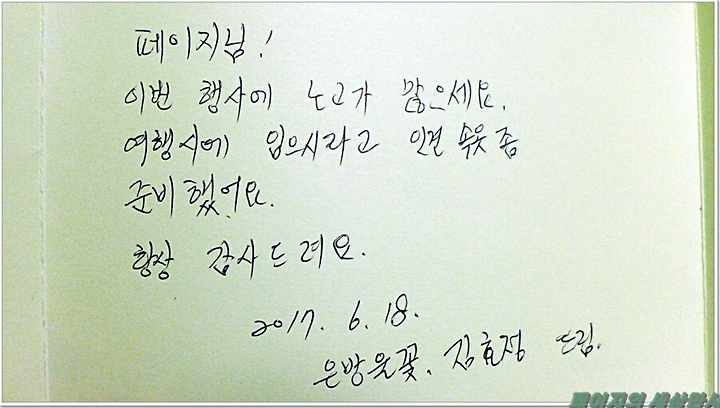 페이지님!
이번 행사에 노고가 많으세요.
여행시에 입으시라고 인견 속옷 좀
준비했어요.
항상 감사드려요.
2017. 6. 18.
은방울꽃, 김효정 드림.